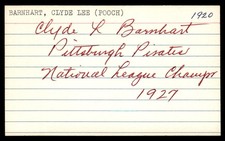 BARNHART, CLYDE LEE (POOCH) 1920
Clyde L Barnhart
Pittsburgh Pirates
National League Champs
1927